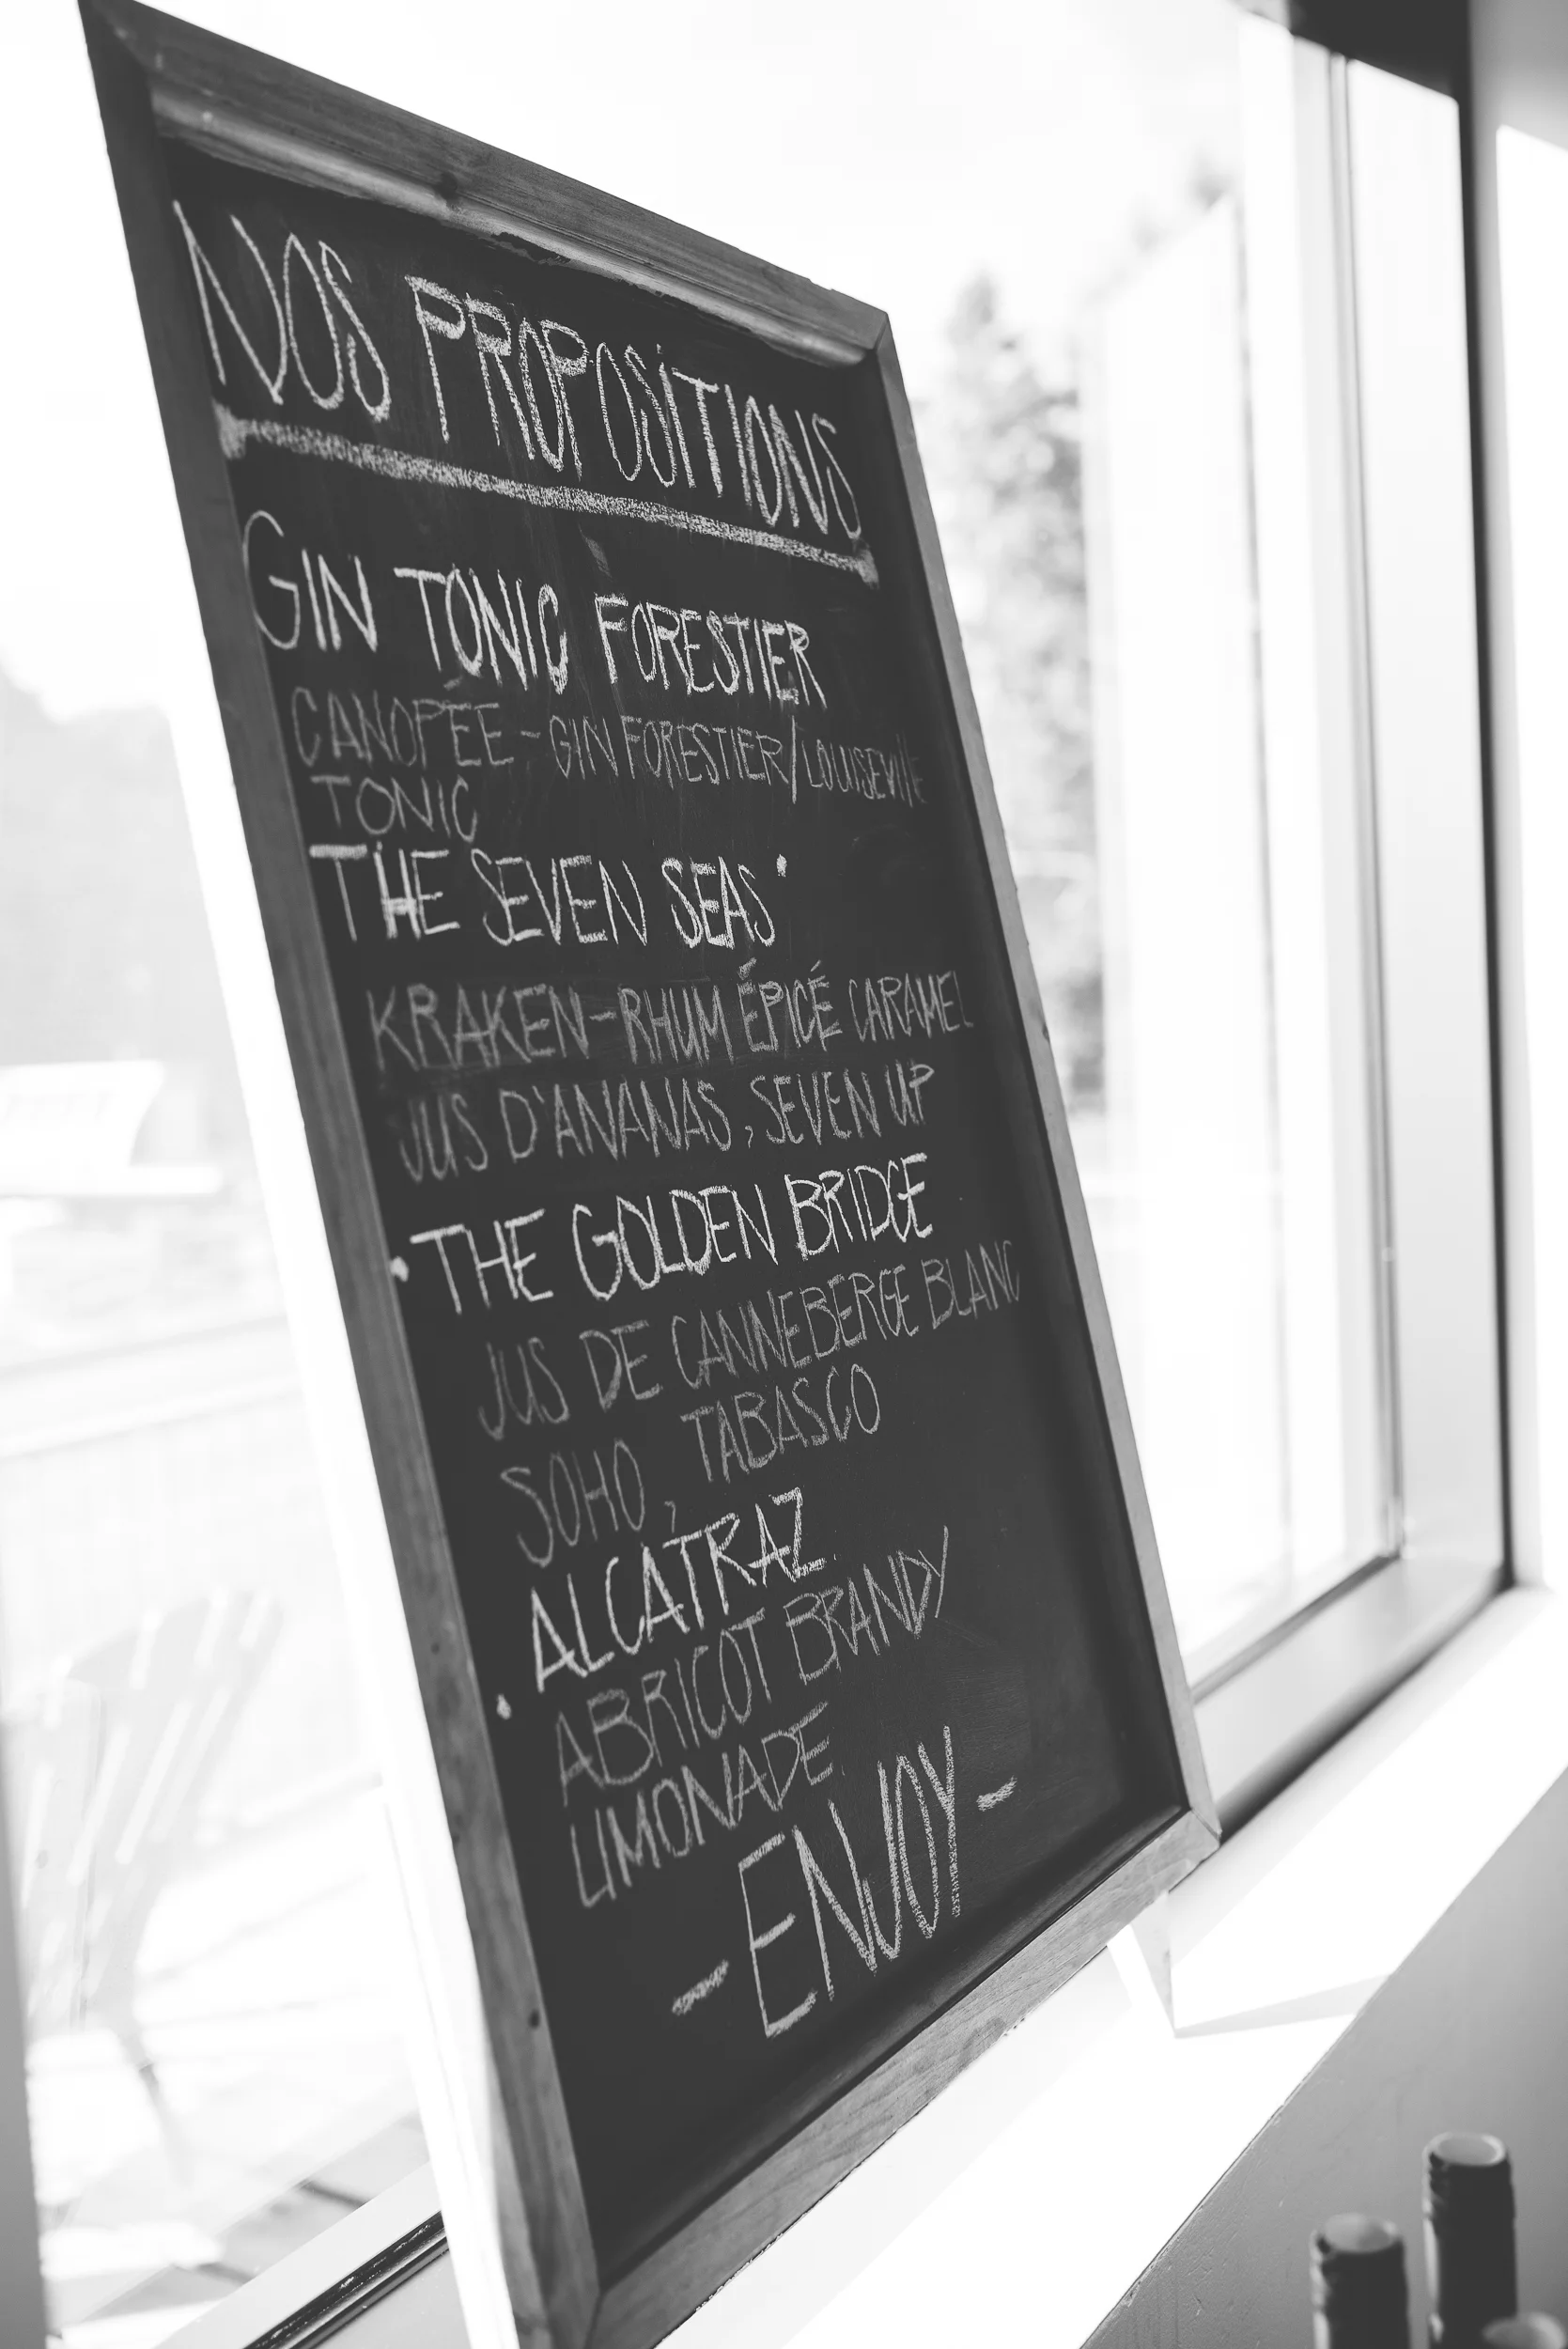 NOS PROPOSITIONS
GIN TONIC FORESTIER
CANOPÉE - GIN FORESTIER/LOUISEVILLE
TONIC
THE SEVEN SEAS
KRAKEN - RHUM ÉPICÉ CARAMEL
JUS D'ANANAS, SEVEN UP
• THE GOLDEN BRIDGE
JUS DE CANNEBERGE BLANC
SOHO, TABASCO
• ALCATRAZ
ABRICOT BRANDY
LIMONADE
- ENJOY -